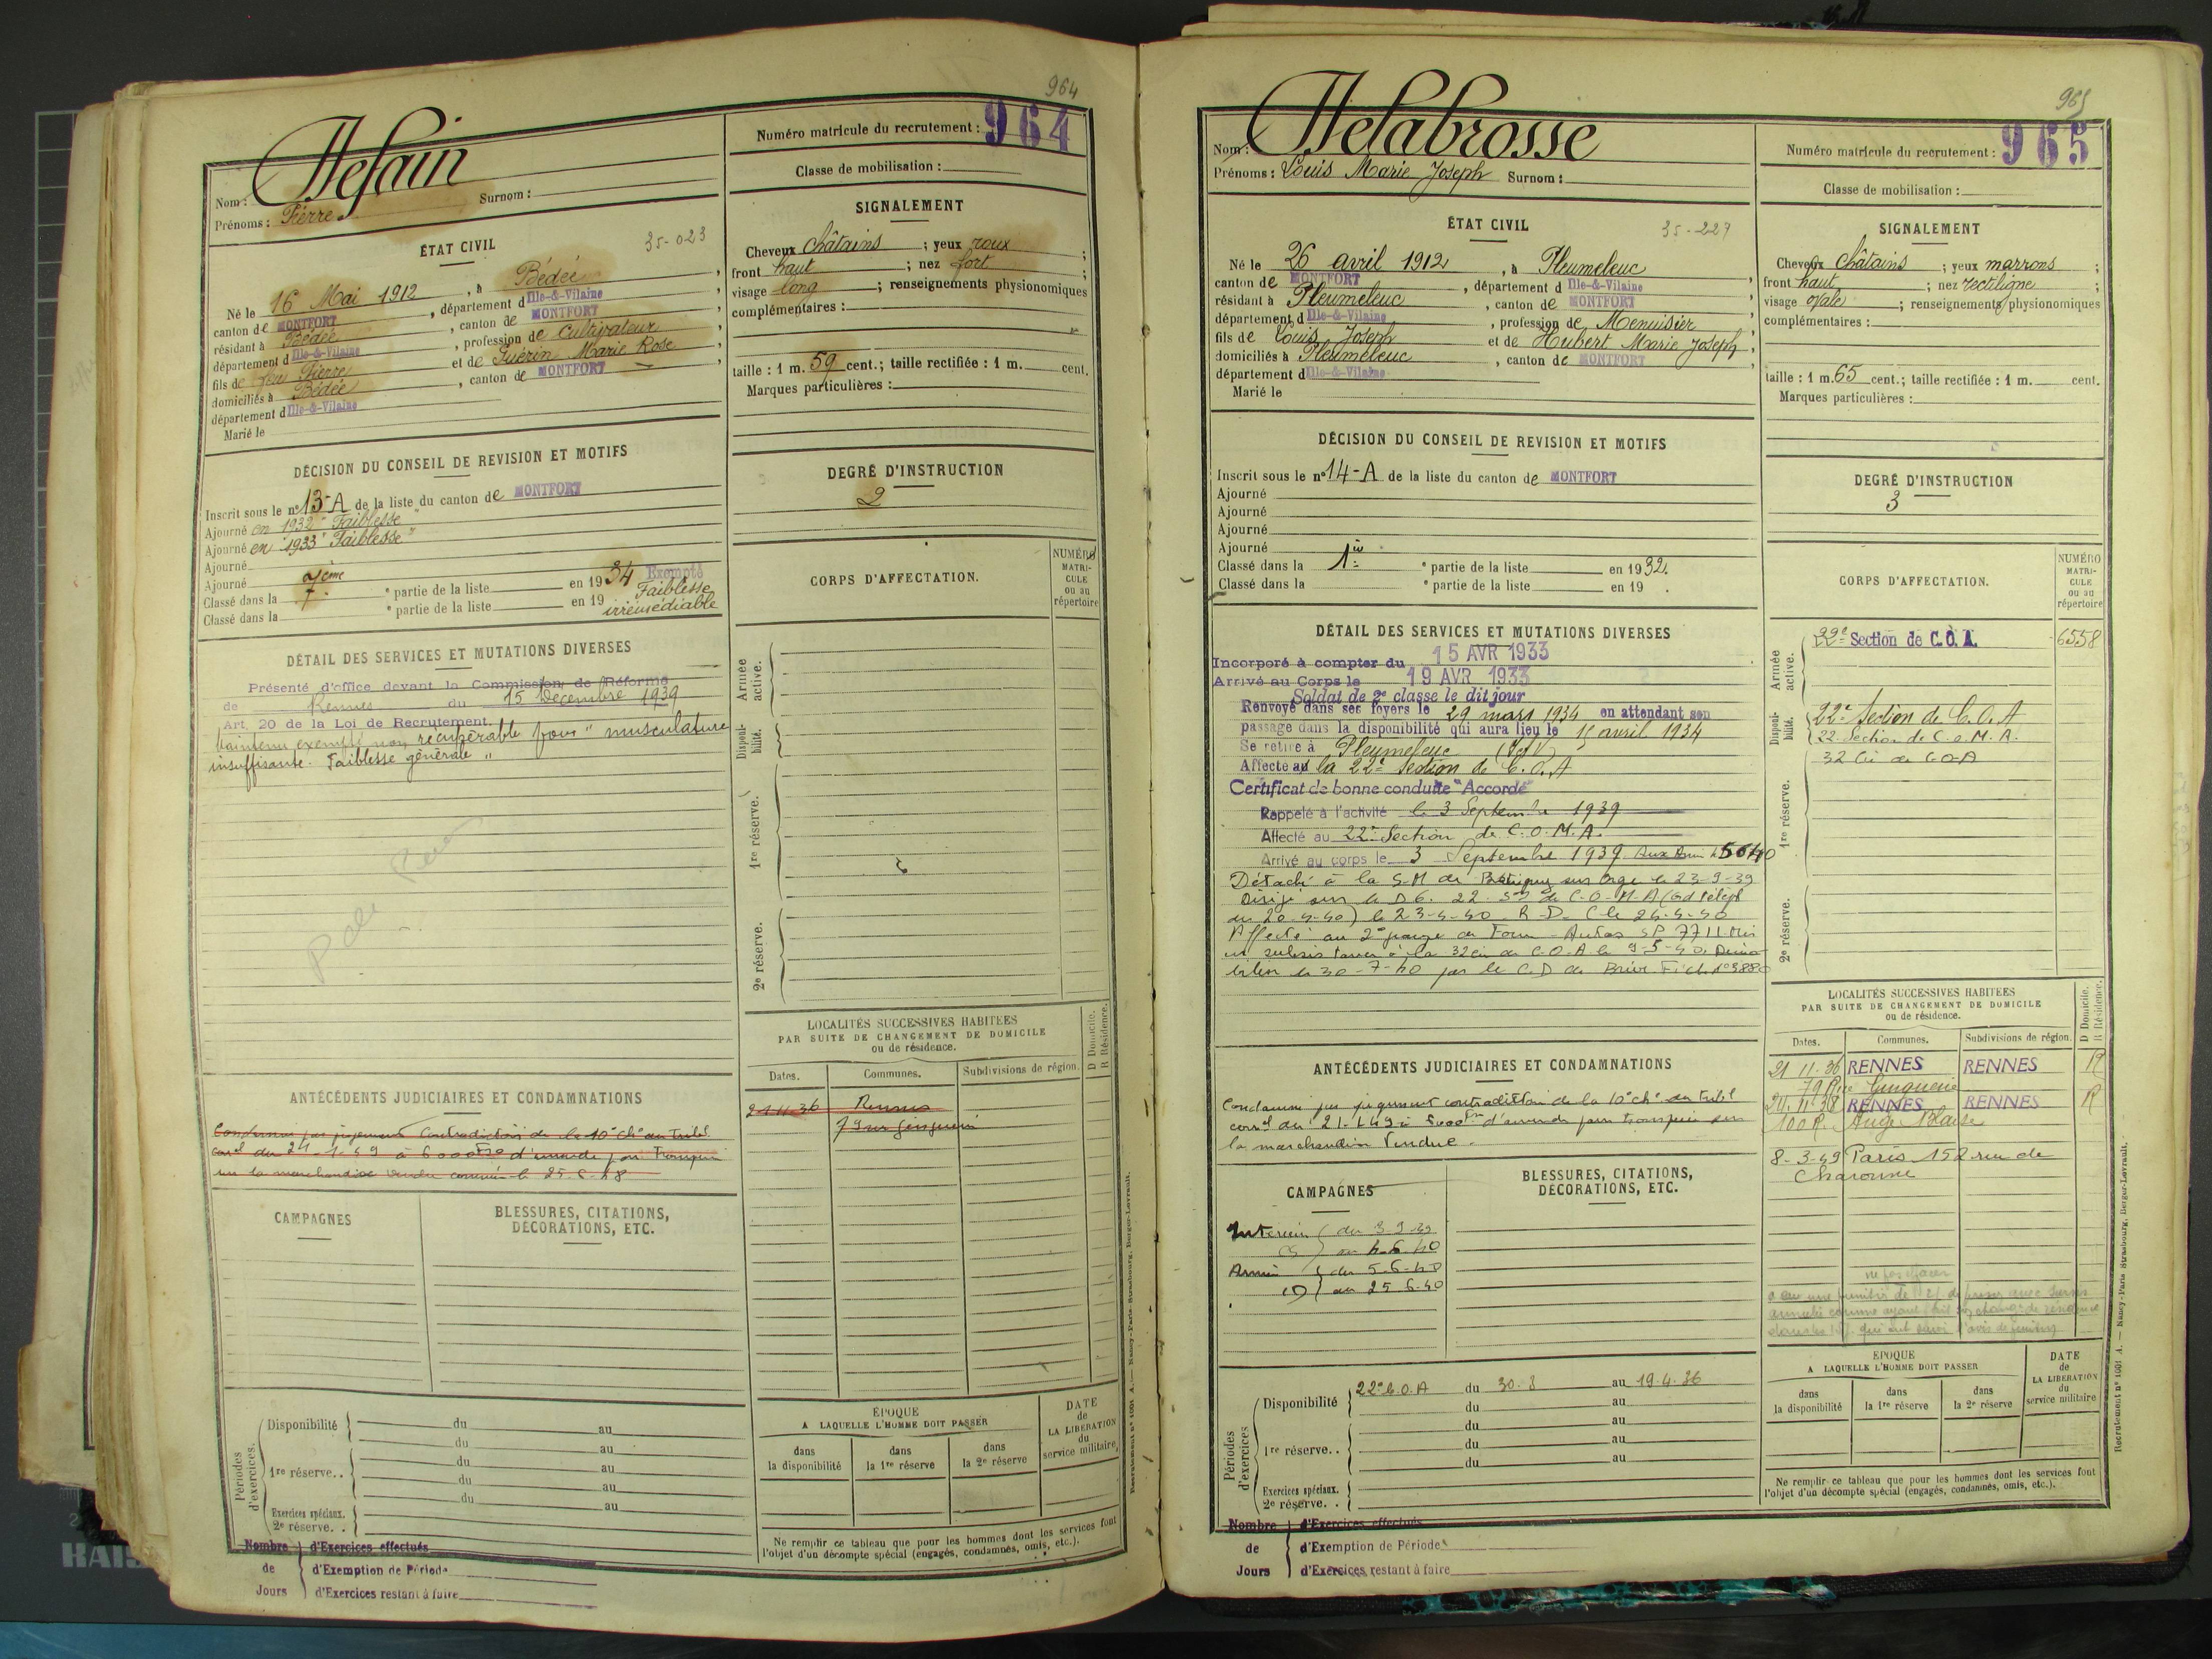 964
Nom : Defain
Numéro matricule du recrutement : 964
Prénoms : Pierre Surnom :
Classe de mobilisation :
ÉTAT CIVIL
35-023
Né le 16 Mai 1912, à Bédée,
canton de MONTFORT, département d Ille-&-Vilaine,
résidant à Bédée, canton de MONTFORT,
département d Ille-&-Vilaine, profession de Cultivateur,
fils de feu Pierre et de Guérin Marie Rose,
domiciliés à Bédée, canton de MONTFORT,
département d Ille-&-Vilaine
Marié le
SIGNALEMENT
Cheveux châtains ; yeux roux ;
front haut ; nez fort ;
visage long ; renseignements physionomiques
complémentaires :
taille : 1 m. 59 cent.; taille rectifiée : 1 m. cent.
Marques particulières :
DÉCISION DU CONSEIL DE REVISION ET MOTIFS
Inscrit sous le nº 13-A de la liste du canton de MONTFORT
Ajourné en 1932 "Faiblesse"
Ajourné en 1933 "Faiblesse"
Ajourné
Ajourné
Classé dans la 7ème partie de la liste en 1934 Exempté
Classé dans la e partie de la liste en 19
Faiblesse
irrémédiable
DEGRÉ D'INSTRUCTION
2
DÉTAIL DES SERVICES ET MUTATIONS DIVERSES
Présenté d'office devant la Commission de Réforme
de Rennes du 15 Décembre 1939
Art. 20 de la Loi de Recrutement.
Maintenu exempté non récupérable pour "musculature
insuffisante. Faiblesse générale"
CORPS D'AFFECTATION.
NUMÉRO
MATRI-
CULE
ou au
répertoire
Armée
active.
Disponi-
bilité.
1re réserve.
2e réserve.
ANTÉCÉDENTS JUDICIAIRES ET CONDAMNATIONS
Condamné par jugement Contradictoire de la 10e ch e du Tribl
corel du 24-1-49 à 6000 Frs d'amende pour Tromperie
sur la marchandise vendue commis le 25.6.48
LOCALITÉS SUCCESSIVES HABITÉES
PAR SUITE DE CHANGEMENT DE DOMICILE
ou de résidence.
D Domicile.
R Résidence.
Dates. Communes. Subdivisions de région.
21-11-36 Rennes
79 rue
CAMPAGNES
BLESSURES, CITATIONS,
DÉCORATIONS, ETC.
Périodes
d'exercices.
Disponibilité du au
du au
1re réserve.. du au
du au
du au
Exercices spéciaux.
2e réserve. .
Nombre
de
Jours
d'Exercices effectués
d'Exemption de Période
d'Exercices restant à faire
ÉPOQUE
A LAQUELLE L'HOMME DOIT PASSER
dans
la disponibilité
dans
la 1re réserve
dans
la 2e réserve
DATE
de
LA LIBÉRATION
du
service militaire
Ne remplir ce tableau que pour les hommes dont les services font
l'objet d'un décompte spécial (engagés, condamnés, omis, etc.).
Recrutement nº 1001 A. — Nancy-Paris-Strasbourg, Berger-Levrault.
965
Nom : Delabrosse
Numéro matricule du recrutement : 965
Prénoms : Louis Marie Joseph Surnom :
Classe de mobilisation :
ÉTAT CIVIL
35-227
Né le 26 avril 1912, à Pleumeleuc
canton de MONTFORT, département d Ille-&-Vilaine,
résidant à Pleumeleuc, canton de MONTFORT,
département d Ille-&-Vilaine, profession de Menuisier,
fils de Louis Joseph et de Hubert Marie Joseph,
domiciliés à Pleumeleuc, canton de MONTFORT,
département d Ille-&-Vilaine
Marié le
SIGNALEMENT
Cheveux châtains ; yeux marrons ;
front haut ; nez rectiligne ;
visage ovale ; renseignements physionomiques
complémentaires :
taille : 1 m. 65 cent.; taille rectifiée : 1 m. cent.
Marques particulières :
DÉCISION DU CONSEIL DE REVISION ET MOTIFS
Inscrit sous le nº 14-A de la liste du canton de MONTFORT
Ajourné
Ajourné
Ajourné
Ajourné
Classé dans la 1re partie de la liste en 1932.
Classé dans la e partie de la liste en 19 .
DEGRÉ D'INSTRUCTION
3
DÉTAIL DES SERVICES ET MUTATIONS DIVERSES
Incorporé à compter du 15 AVR 1933
Arrivé au Corps le 19 AVR 1933
Soldat de 2e classe le dit jour
Renvoyé dans ses foyers le 29 mars 1934 en attendant son
passage dans la disponibilité qui aura lieu le 15 avril 1934
Se retire à Pleumeleuc (I et V)
Affecté au la 22e Section de C.O.A
Certificat de bonne conduite "Accordé"
Rappelé à l'activité le 3 Septembre 1939
Affecté au 22e Section de C.O.M.A.
Arrivé au corps le 3 Septembre 1939 Aux Armées le 5 6 40
Détaché à la S-M de Brétigny sur Orge le 23-9-39
Dirigé sur le D6. 22. Son de C-O-M-A
du 20-4-40) le 23-4-40 R-D-C le 24-4-40
Affecté au 2e
à la 32 Cie de C-O-A le 9-5-40. Démo-
bilisé le 30-7-40 par le C.D de Brive
CORPS D'AFFECTATION.
NUMÉRO
MATRI-
CULE
ou au
répertoire
Armée
active.
22e Section de C.O.A. 6558
Disponi-
bilité.
22e Section de C.O.A
22 Section de C.O.M.A.
32 Cie de C-O-A
1re réserve.
2e réserve.
ANTÉCÉDENTS JUDICIAIRES ET CONDAMNATIONS
Condamné par jugement contradictoire de la 10e ch e du Tribl
corel du 21-1-49 à d'amende pour tromperie sur
la marchandise vendue.
LOCALITÉS SUCCESSIVES HABITÉES
PAR SUITE DE CHANGEMENT DE DOMICILE
ou de résidence.
D Domicile.
R Résidence.
Dates. Communes. Subdivisions de région.
21 11-36 RENNES RENNES R
79 Rue
20.11-38 RENNES RENNES R
100 R. Ange Blaise
8-3-49 Paris 152 rue de
Charonne
ne pas effacer
CAMPAGNES
Intérieur du 3-9-39
CS au 4-6-40
Armée du 5-6-40
CD au 25 6-40
BLESSURES, CITATIONS,
DÉCORATIONS, ETC.
Périodes
d'exercices
Disponibilité 22e C.O.A du 30-3 au 19-4-36
du au
1re réserve.. du au
du au
du au
Exercices spéciaux.
2e réserve. .
Nombre
de
Jours
d'Exercices effectués
d'Exemption de Période
d'Exercices restant à faire
ÉPOQUE
A LAQUELLE L'HOMME DOIT PASSER
dans
la disponibilité
dans
la 1re réserve
dans
la 2e réserve
DATE
de
LA LIBÉRATION
du
service militaire
Ne remplir ce tableau que pour les hommes dont les services font
l'objet d'un décompte spécial (engagés, condamnés, omis, etc.).
Recrutement nº 1001 A. — Nancy-Paris Strasbourg, Berger-Levrault.